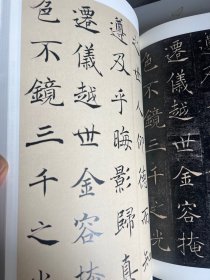 遷儀越世金容掩
色不鏡三千之光
人仰德而
遵及乎晦影歸真
遷儀越世金容掩
色不鏡三千之光